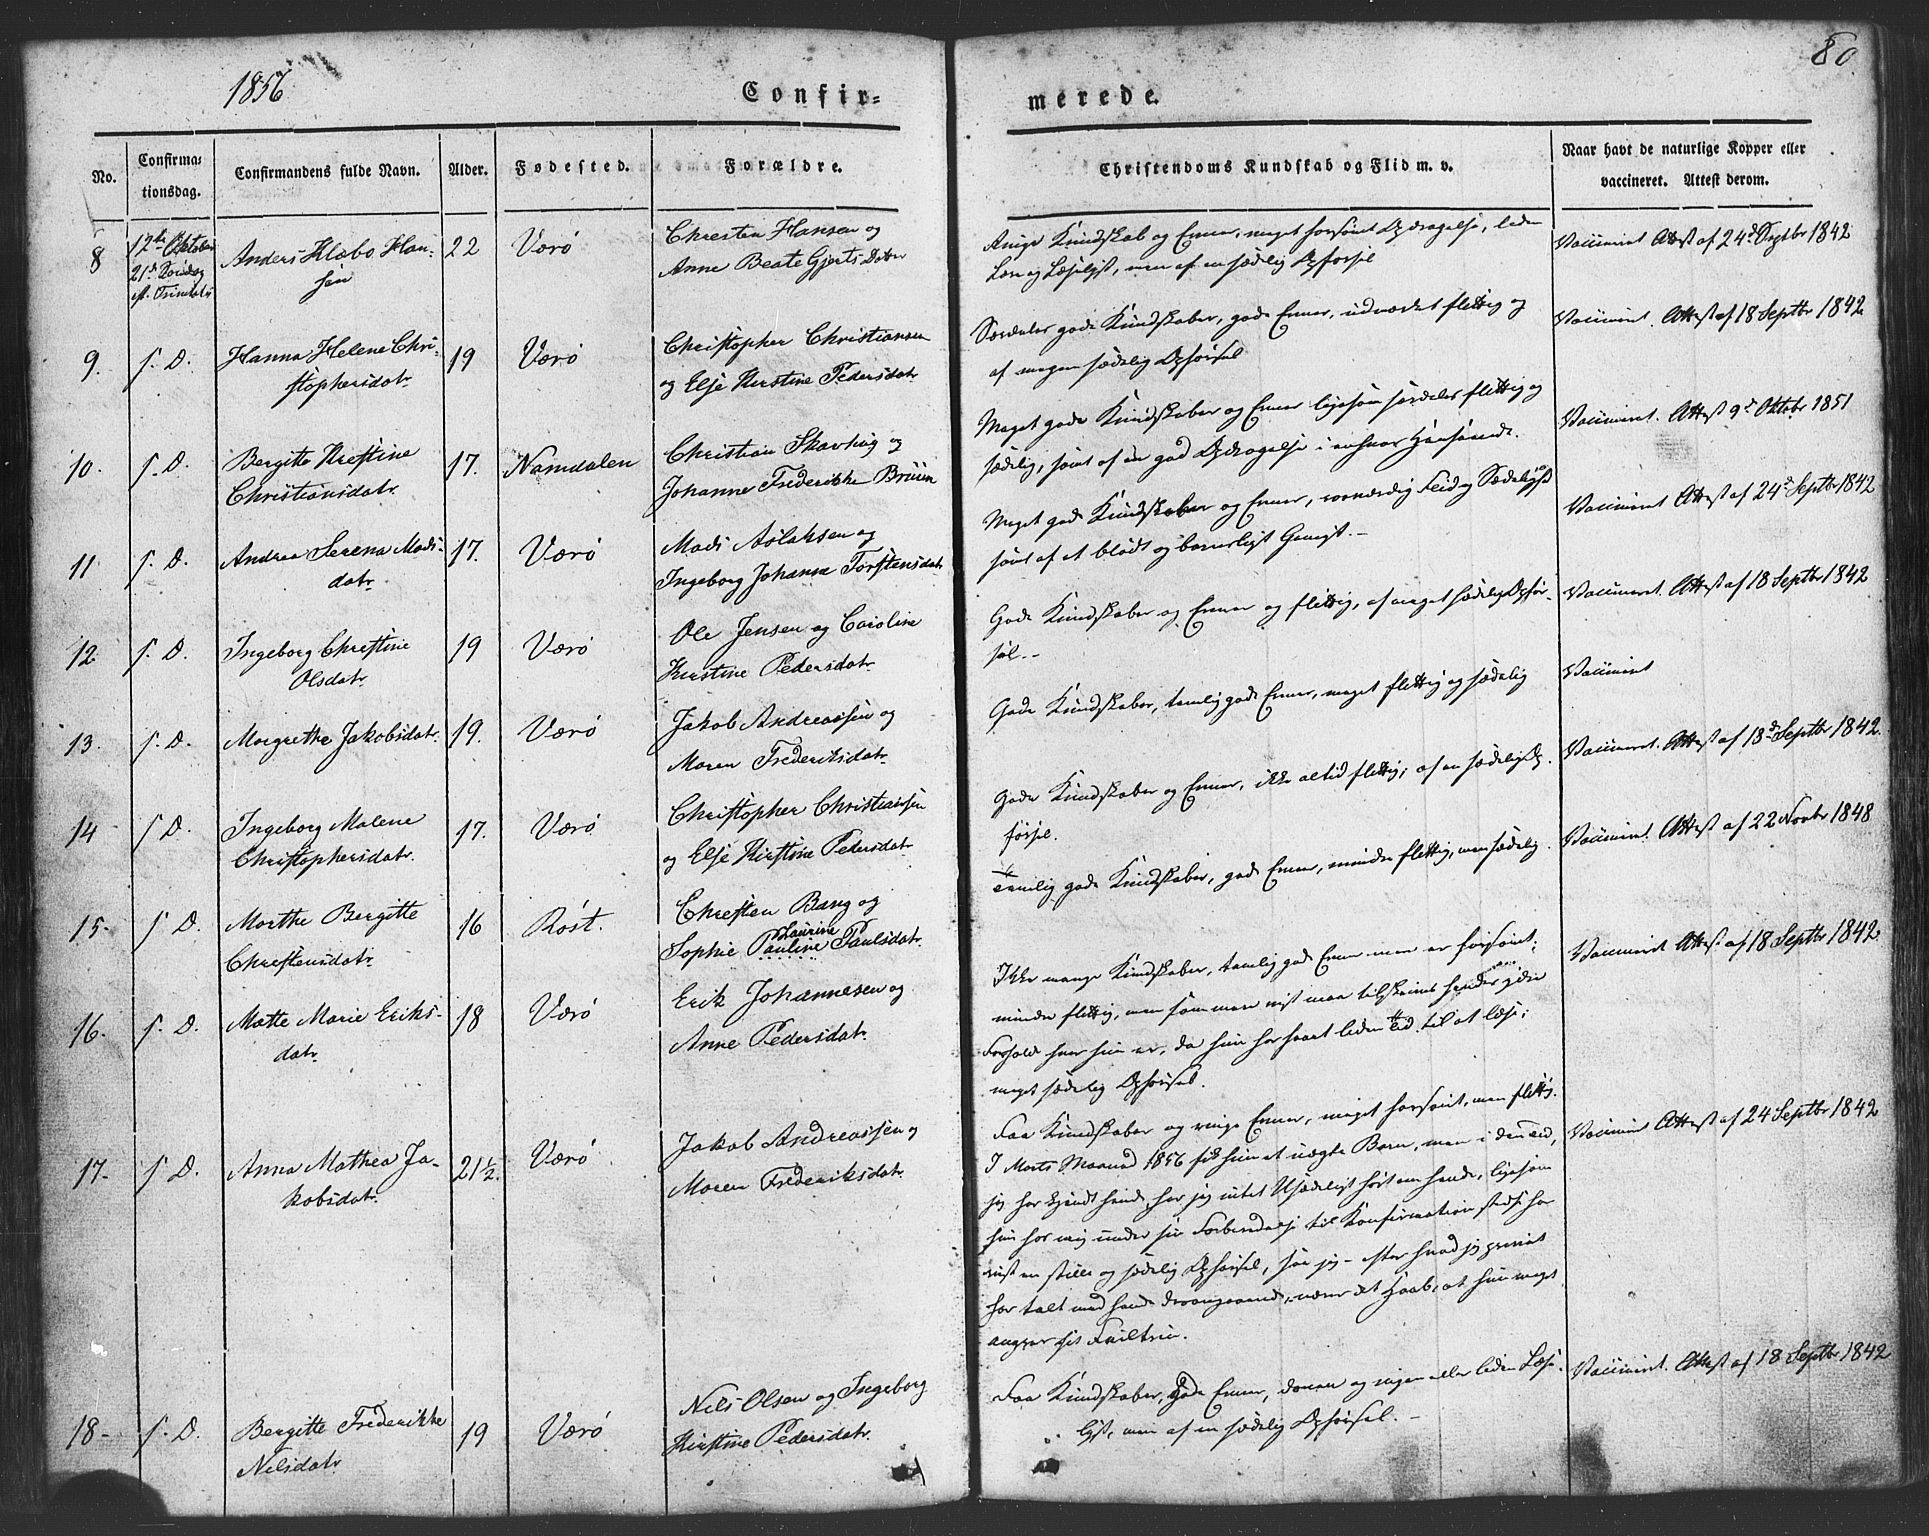 1856
80.
Confir=
merede.
No.
Confirma=
tionsdag.
Confirmandens fulde Navn.
Alder.
Fødested.
Forældre.
Christendoms Kundskab og Flid m. v.
Naar havt de naturlige Kopper eller
vaccineret. Attest derom.
8
12te Oktober
21d Søndag
Anders Klæbo Han-
sen
22
Værø
Christen Hansen og
Anne Beate Gjerts Datter
Kundskab og Evner, meget forsømt Opdragelse, liden
Lære og Læselyst, men af en sædelig Opførsel
Vaccineret Attest af 24d Septbr 1842
9.
s. D.
Hanna Helene Chri-
stophersdatr
19
Værø
Christopher Christiansen
og Else Kirstine Pedersdatr
Særdeles gode Kundskaber, gode Evner, udmærket flittig og
af megen sædelig Opførsel
Vaccineret. Attest af 18 Septbr 1842
10.
s. D.
Bergitte Krestine
Christiansdatr
17.
Namdalen
Christian Skavhug og
Johanne Frederikke Brüün
Meget gode Kundskaber og Evner ligesom særdeles flittig og
sædelig, samt af en god Opdragelse i enhver Henseende.
Vaccineret. Attest 9d Oktobr 1851
11
s. D.
Andrea Serena Mads-
datr
17.
Værø
Mads Aslaksen og
Ingeborg Johanna Torstensdatr
Meget gode Kundskaber og Evner, roesværdig Flid og Sædelighed
samt af et blødt og barnligt Gemyt. -
Vaccineret Attest af 24d Septbr 1842
12.
s. D.
Ingeborg Christine
Olsdatr
19
Værø
Ole Jensen og Caroline
Kirstine Pedersdatr
Gode Kundskaber og Evner og flittig, af meget sædelig Opfør-
sel. -
Vaccineret. Attest af 18 Septbr 1842
13.
s. D.
Margrethe Jakobsdatr
19.
Værø
Jakob Andreassen og
Maren Frederiksdatr
Gode Kundskaber, temlig gode Evner, meget flittig og sædelig
Vaccineret
14
s D.
Ingeborg Malene
Christophersdatr.
17.
Værø
Christopher Christiansen
og Else Kirstine Pedersdatr
Gode Kundskaber og Evner, ikke altid flittig; af en sædelig Op-
førsel.
Vaccineret. Attest af 18d Septbr 1842.
15.
s D.
Marthe Bergitte
Christensdatr
16
Røst.
Christen Bang og
Laurine
Sophie Pauline Paulsdatr
Temlig gode Kundskaber, gode Evner, mindre flittig, men sædelig.
Vaccineret. Attest af 22 Novbr 1848
16.
s. D.
Mette Marie Eriks-
datr.
18
Værø
Erik Johannesen og
Anne Pedersdatr.
Ikke mange Kundskaber, temlig gode Evner men er forsømt;
mindre flittig, men som man vist maa tilskrive hendes ydre
Forholde hvor hun er, da hun har havt liden Tid til at læse;
meget sædelig Opførsel.
Vaccineret Attest af 18 Septbr 1842.
17.
s D.
Anna Mathea Ja-
kobsdatr.
21 1/2.
Værø
Jakob Andreassen og
Maren Frederiksdatr
Faa Kundskaber og ringe Evner, meget forsømt, men flittig.
I Marts Maaned 1856 fik hun et uægte Barn, men i den Tid,
jeg har kjendt hende, har jeg intet Usædeligt hørt om hende, ligesom
hun hos mig under sin Forberedelse til Konfirmation stedse har
vist en stille og sædelig Opførsel, saa jeg - efter hvad jeg privat
har talt med hende derangaaende, nærer det Haab, at hun meget
angrer sit Feiltrin.
Vaccineret Attest af 24 Septbr 1842
18-
s. D.
Bergitte Frederikke
Nilsdatr
19
Værø
Nils Olsen og Ingeborg
Kirstine Pedersdatr.
Faa Kundskaber, gode Evner, doven og ingen eller liden Læse-
lyst, men af en sædelig Opførsel. -
Vaccineret. Attest af 18 Septbr 1842